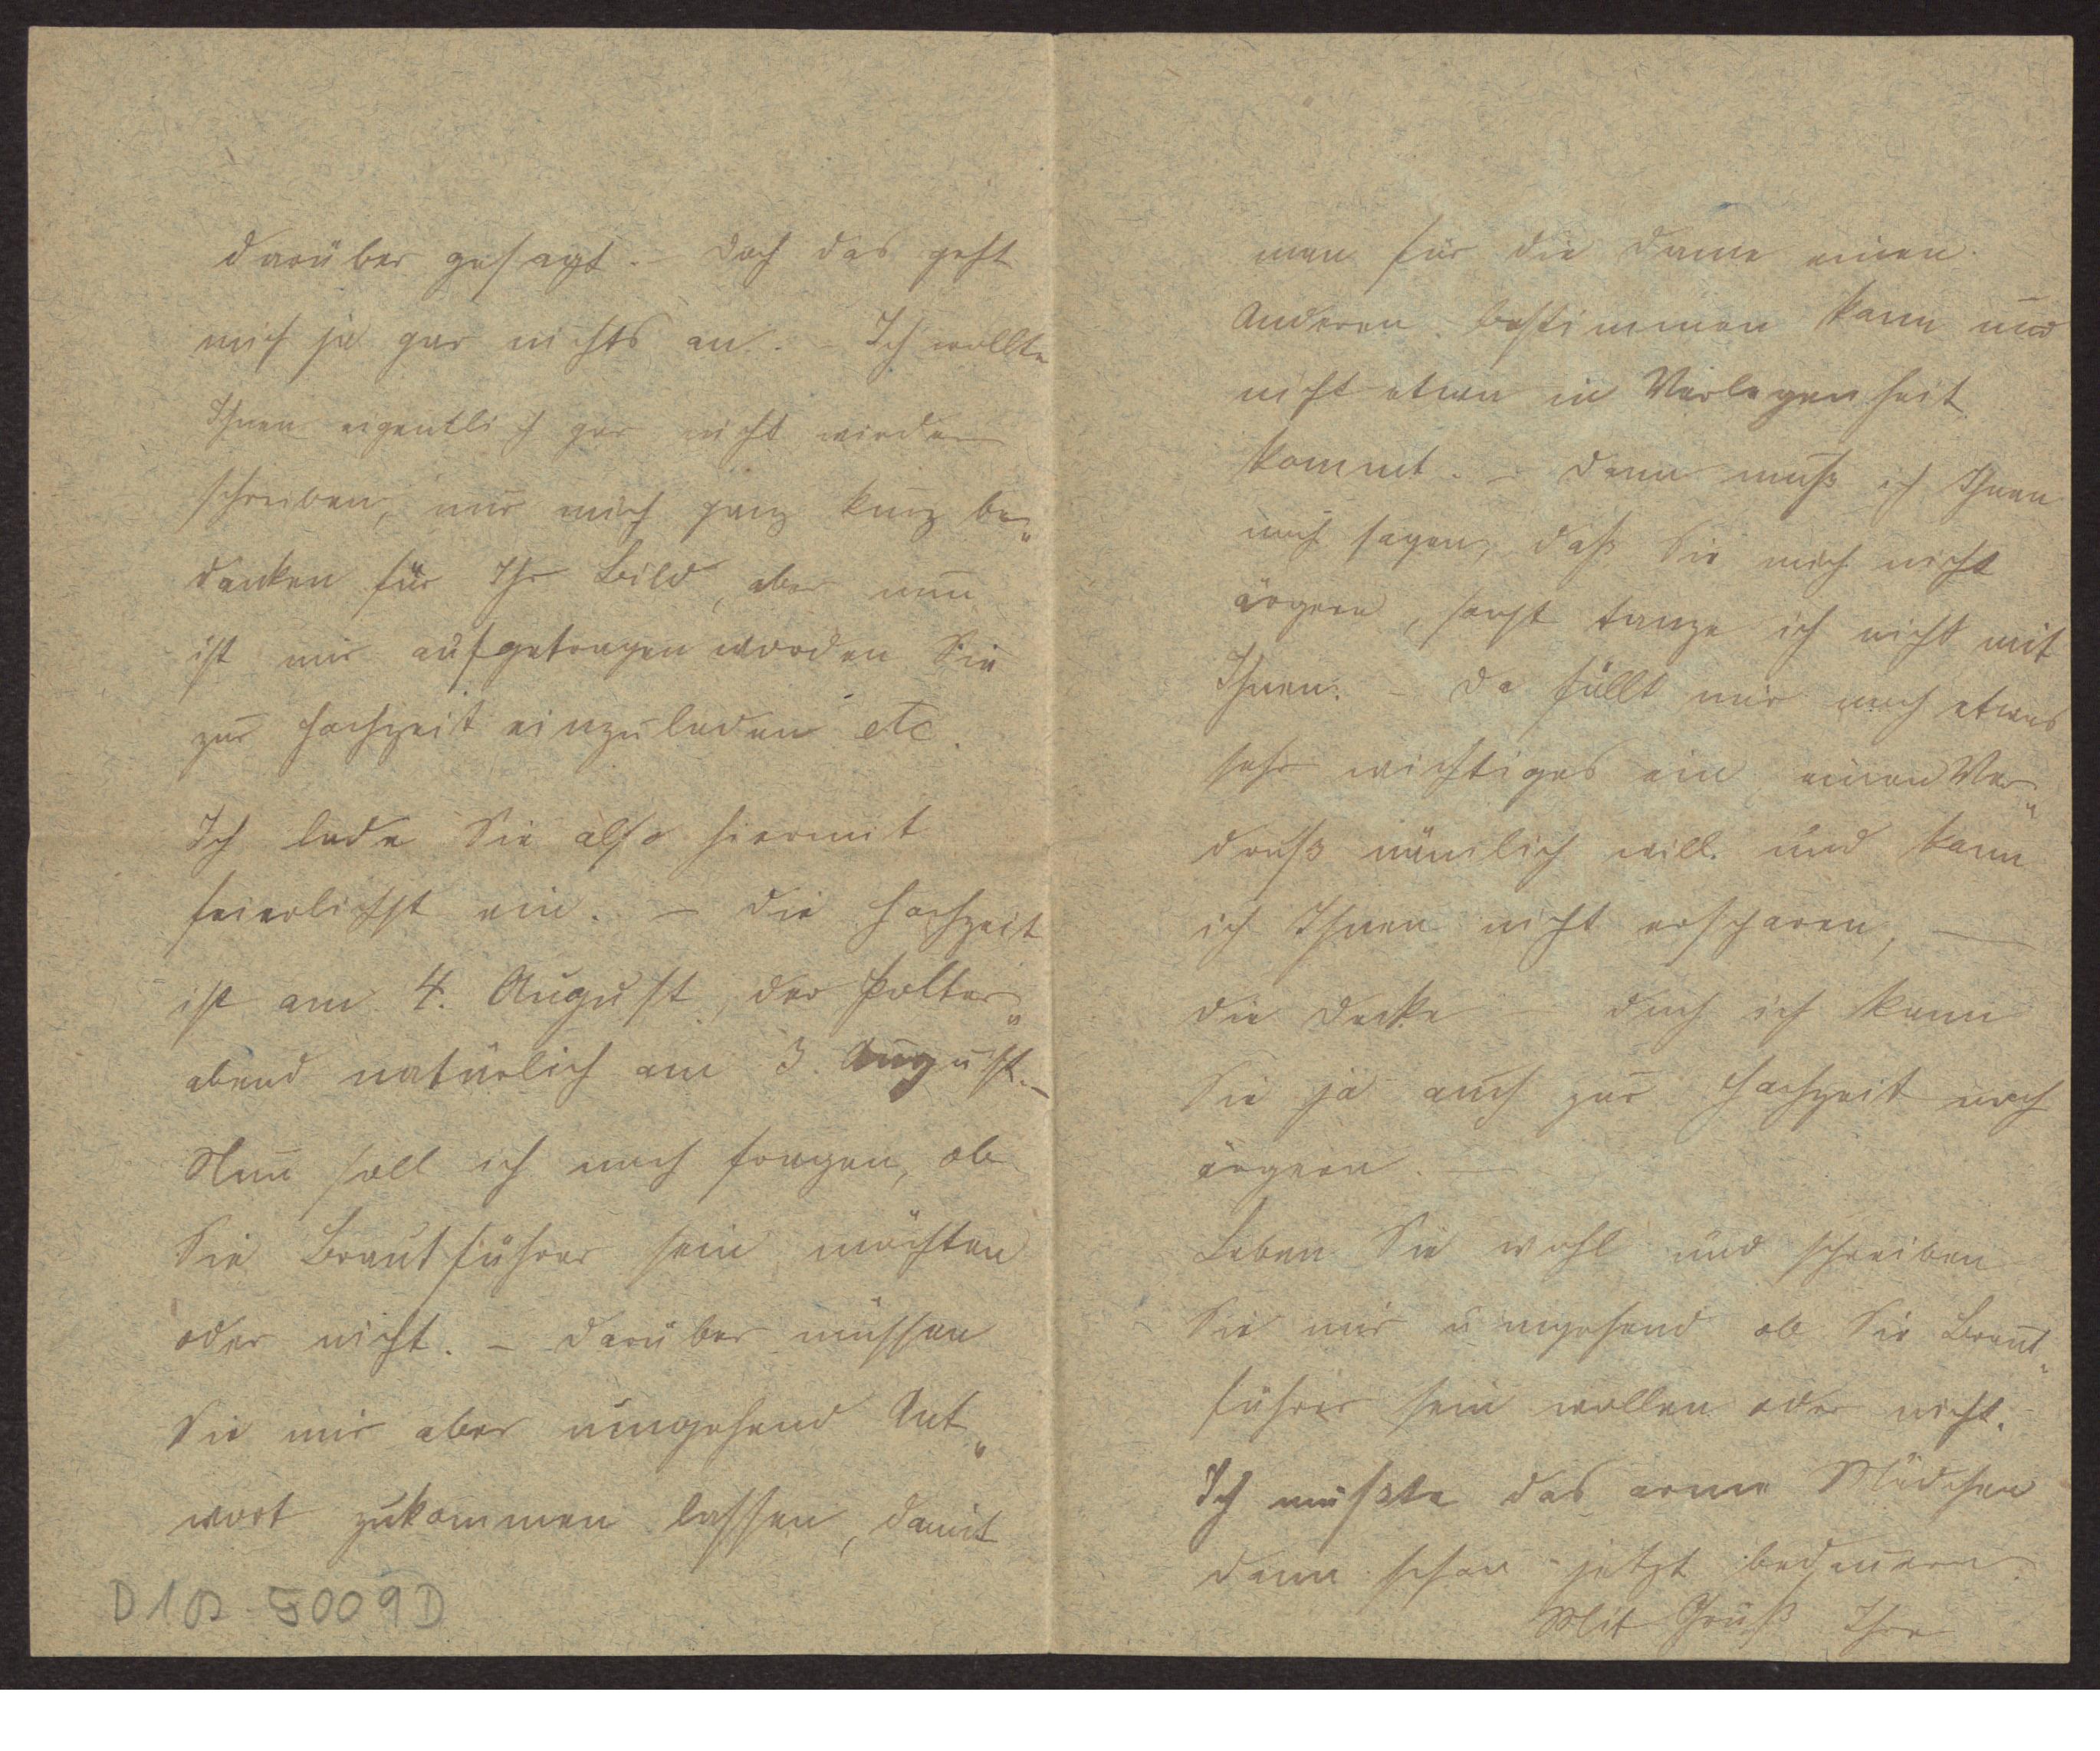 darüber gesagt. – Doch das geht
mich ja gar nichts an. – Ich wollte
Ihnen eigentlich gar nicht wieder
schreiben, nur mich ganz kurz be„
danken für Ihr Bild, aber nun
ist mir aufgetragen worden Sie
zur Hochzeit einzuladen etc.
Ich lade Sie also hiermit
feierlichst ein. – Die Hochzeit
ist am 4. August, der Polter„
abend natürlich am 3. August. –
Nun soll ich noch fragen, ob
Sie Brautführer sein möchten
oder nicht. – Darüber müssen
Sie mir aber umgehend Ant„
wort zukommen lassen, damit
D 10 5009 D
man für die Dame einen
Anderen bestimmen kann und
nicht etwa in Verlegenheit
kommt. – Dann muß ich Ihnen
noch sagen, daß Sie mich nicht
ärgern, sonst tanze ich nicht mit
Ihnen. – Da fällt mir noch etwas
sehr wichtiges ein, einen Ver„
druß nämlich will und kann
ich Ihnen nicht ersparen, –
die Decke – doch ich kann
Sie ja auch zur Hochzeit noch
ärgern. –
Leben Sie wohl und schreiben
Sie mir umgehend ob Sie Braut„
führer sein wollen oder nicht.
Ich müßte das arme Mädchen
dann schon jetzt bedauern.
Mit Gruß Ihre